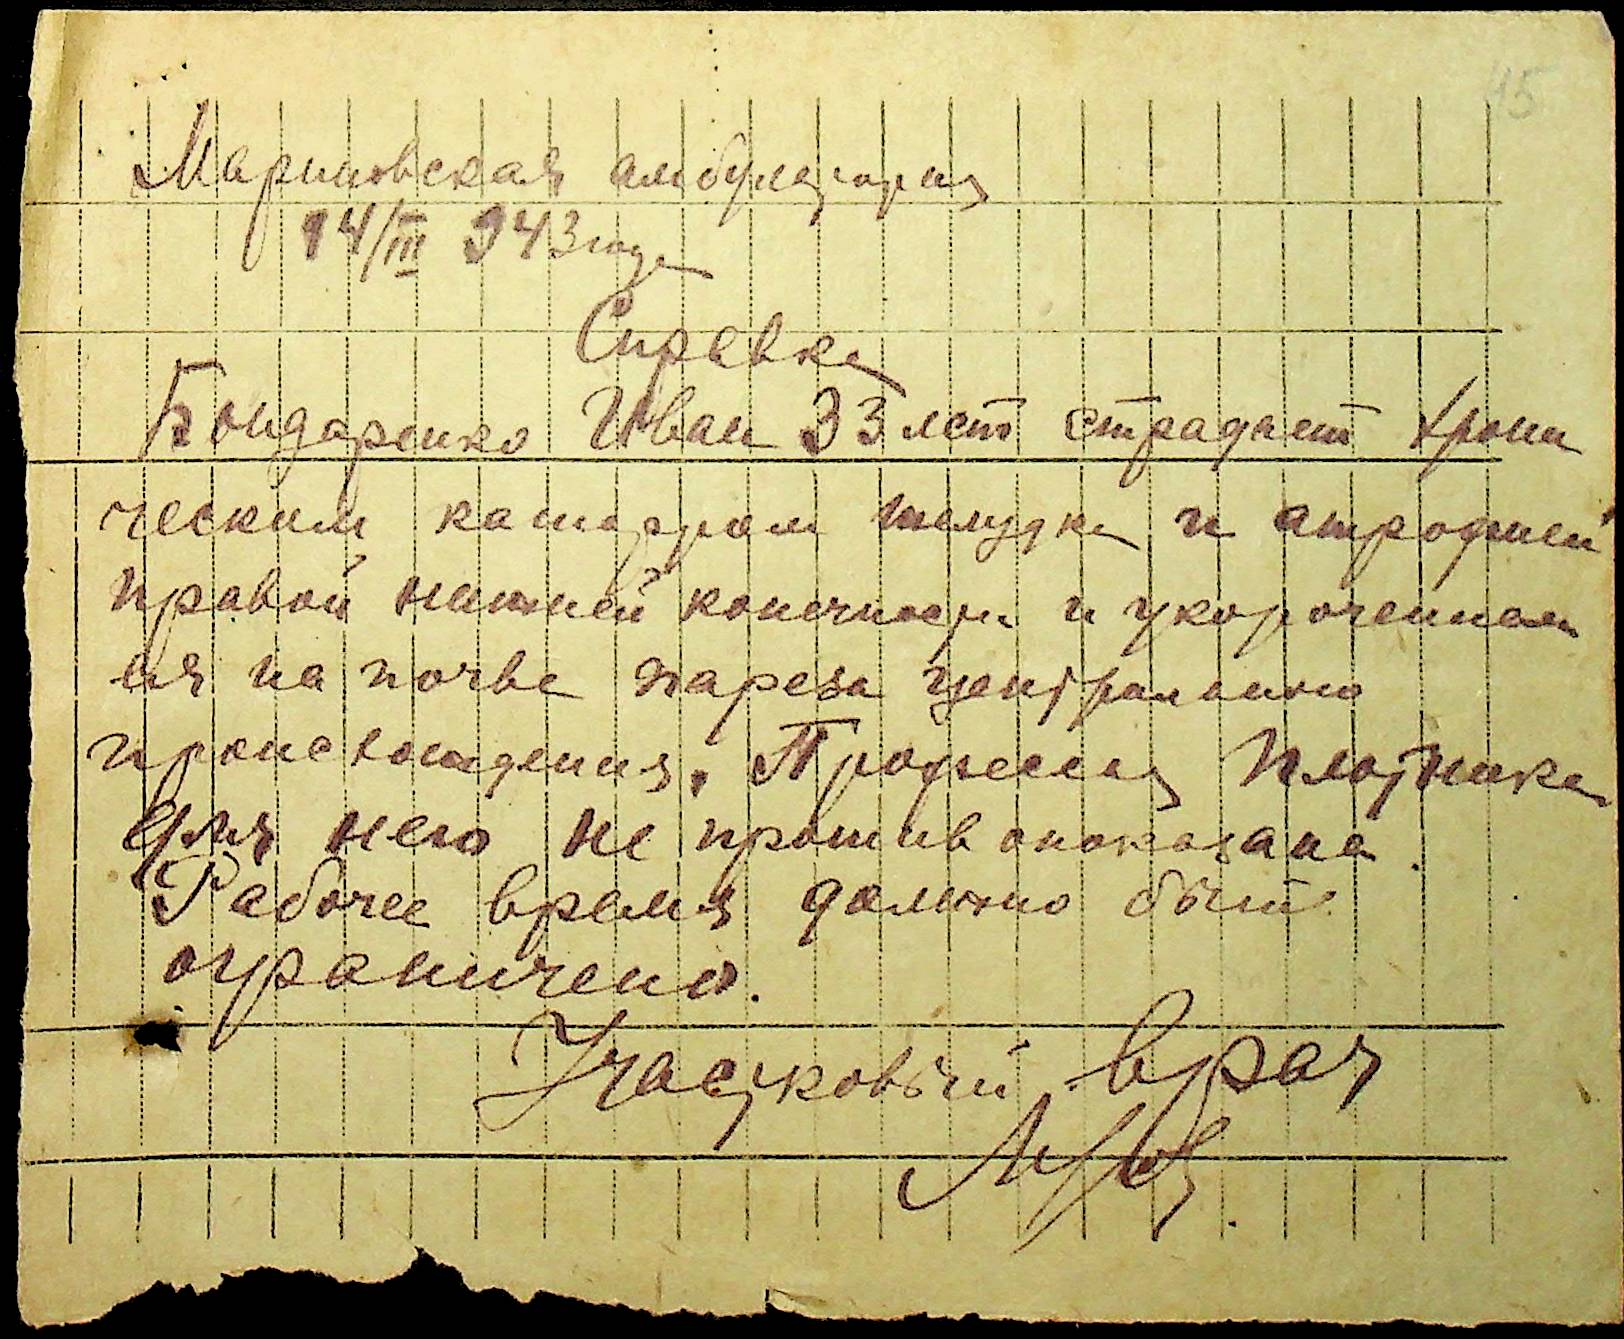 45
Мариновская амбулатория
14/III 943 года
Справка
Бондаренко Иван 33 лет страдает хрони
ческим катарром желудка и атрофией
правой нижней конечности и укорочением
ея на почве пареза центрального
происхождения. Профессия плотника
для него не противопоказана.
Рабочее время должно быть
ограничено.
Участковый врач